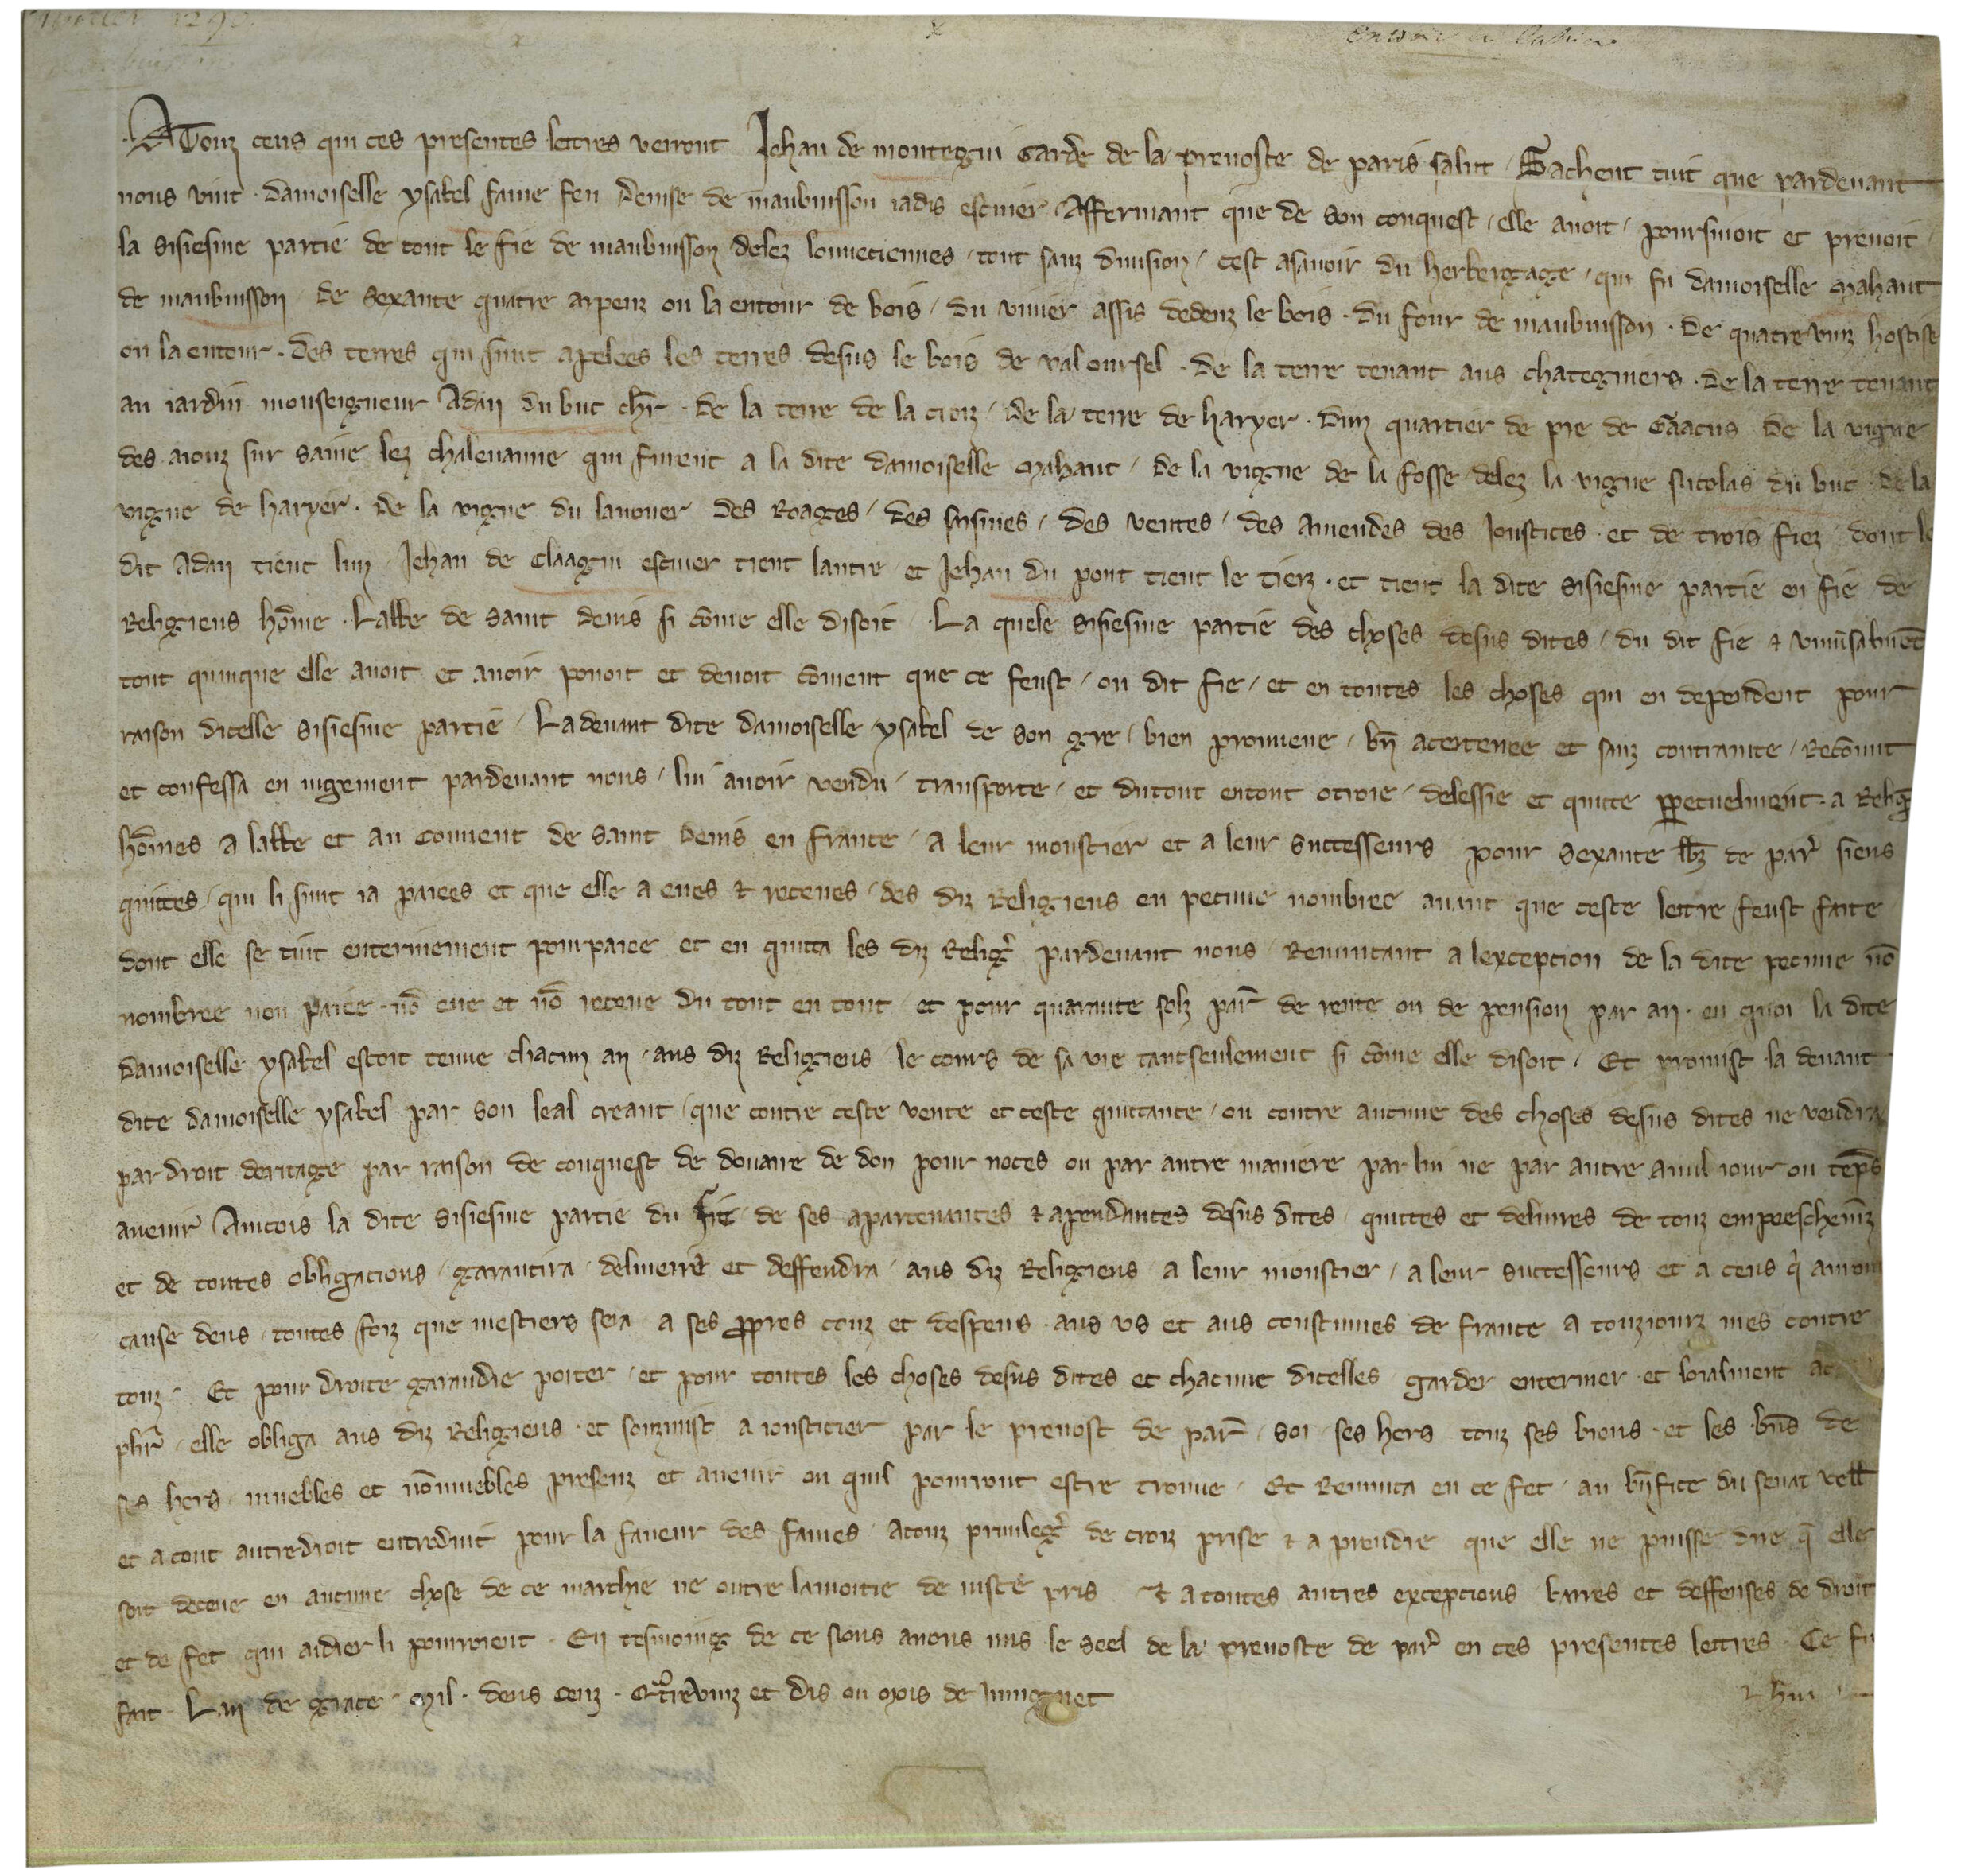 A Touz ceus qui ces presentes lettres verront Jehan de montegni Garde de la prevoste de paris salut . Sachent tuit que pardevant
nous vint . Damoiselle ysabel fame feu Denise de maubuisson iadis escuier . Affermant que de son conquest / elle avoit / poursivoit et prenoit /
la sisiesme partie de tout le fie de maubuisson delez louveciennes / tout sanz division / cest asavoir du herbergage / qui fu damoiselle Mahaut
de maubuisson / de sexante quatre arpenz ou la entour de bois / du vivier assis dedenz le bois . du four de maubuisson . De quatre vinz hostises
ou la entour . Des terres qui sunt apelees les terres desus le bois de val oursel . de la terre tenant aus chategniers . de la terre tenant
au iardin monseigneur Adan du buc chr̄ . De la terre de la croiz / De la terre de haryer . Dun quartier de pre de Gaacus De la vigne
des aiouz sur saine lez chalevanne qui furent a la dite damoiselle Mahaut / De la vigne de la fosse delez la vigne Nicolas du buc . De la
vigne de haryer . De la vigne du lanouer Des Roages / Des sesines / Des ventes / des Amendes des Joustices . et de trois fiez / dont le
dit Adan tient lun / Jehan de Claagni escuier tient lautre et Jehan du pont tient le tierz . et tient la dite sisiesme partie en fie de
Religieus hōme . Labbe de saint Denis si cōme elle disoit . La quele sisiesme partie des choses desus dites / du dit fie ⁊ univ̄salmēt
tout quinque elle avoit et avoir povoit et devoit cōment que ce feust / ou dit fie / et en toutes les choses qui en dependent pour
raison dicelle sisiesme partie / La devant dite damoiselle ysabel de son gre / bien pourveue / bn̄ acertenee et sanz contrainte / Recōnut
et confessa en iugement pardevant nous / lui avoir vendu / transporte / et dutout entout otroie / delessie et quite ꝑpetuelment . a Relig̃
hōmes a labbe et au Couvent de Saint Denis en france / a leur moustier et a leur successeurs pour sexante lb̄z de par̄ siens
quittes / qui li sunt ia paiees et que elle a eues ⁊ receues / des diz Religieus en pecune nombree avant que ceste lettre feust faite
dont elle se tint enterinement pourpaiee et en quitta les diz Relig̃ pardevant nous / Renuncant a lexcepcion de la dite pecune nō
nombree non paiee . nō eue et nō receue du tout en tout / et pour quarante solz par̄ de rente ou de pension par an . en quoi la dite
Damoiselle ysabel estoit tenue chacun an . aus diz Religieus le cours de sa vie tantseulement si cōme elle disoit . Et promist la devant
dite damoiselle ysabel par son leal creant / que contre ceste vente et ceste quittance / ou contre aucune des choses desus dites ne vendra
par droit deritage par raison de conquest de douaire de don pour noces ou par autre maniere par lui ne par autre a nul iour ou tēps
avenir Aincois la dite sisiesme partie du fie de ses apartenances ⁊ apendances desus dites / quittes et delivres de touz empeeschem̄z
et de toutes obligacions / garantira / deliverra et deffendra / aus diz Religieus / a leur moustier / a leur successeurs et a ceus q̄i auront
cause deus / toutes foiz que mestiers sera a ses ꝓpres couz et despens . aus us et aus coustumes de france a touziourz mes contre
touz . Et pour droite garandie porter / et pour toutes les choses desus dites et chacune dicelles / garder enteriner . et loialment
plir̄ / elle obliga aus diz Religieus . et souzmist a iousticier par le prevost de par̄ / soi / ses hers touz ses biens . et les . bn̄s de
ses hers muebles et nōmuebles presenz et avenir ou quil pourront estre trouve . Et Renunca en ce fet / au bn̄fice du senat vell̄
et a tout autredroit entroduit pour la faveur des fames . a touz privileg̃ de croiz prise ⁊ a prendre que elle ne puisse dire q̄ elle
soit deceue en aucune chose de ce marchie ne outre lamoitie de iuste pris ⁊ a toutes autres excepcions barres et deffenses de droit
et de fet qui aidier li pourroient . En tesmoing de ce Nous avons mis le seel de la prevoste de par̄ en ces presentes lettres . Ce fu
fait . Lan de grace . Mil . deus cenz . Quatrevinz et Dis ou Mois de Juingnet